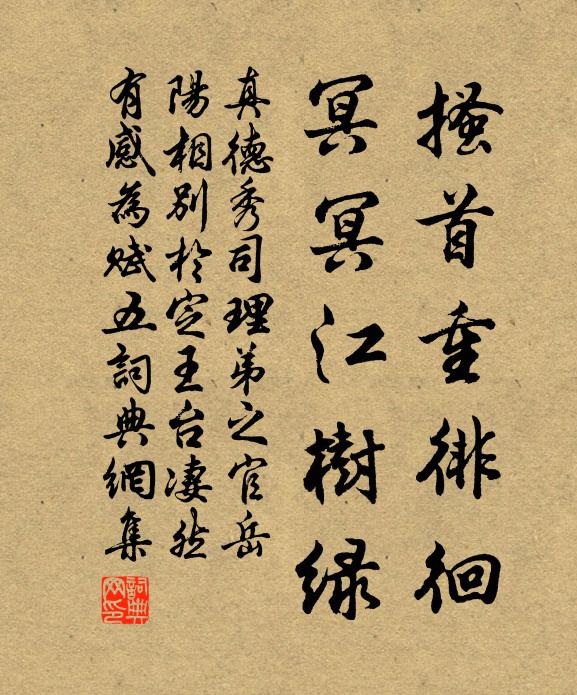 搔首重徘徊
冥冥江樹綠
真德秀司理弟之官岳
陽相別於定王台凄然
有感為賦五詞典網集
詞典網印